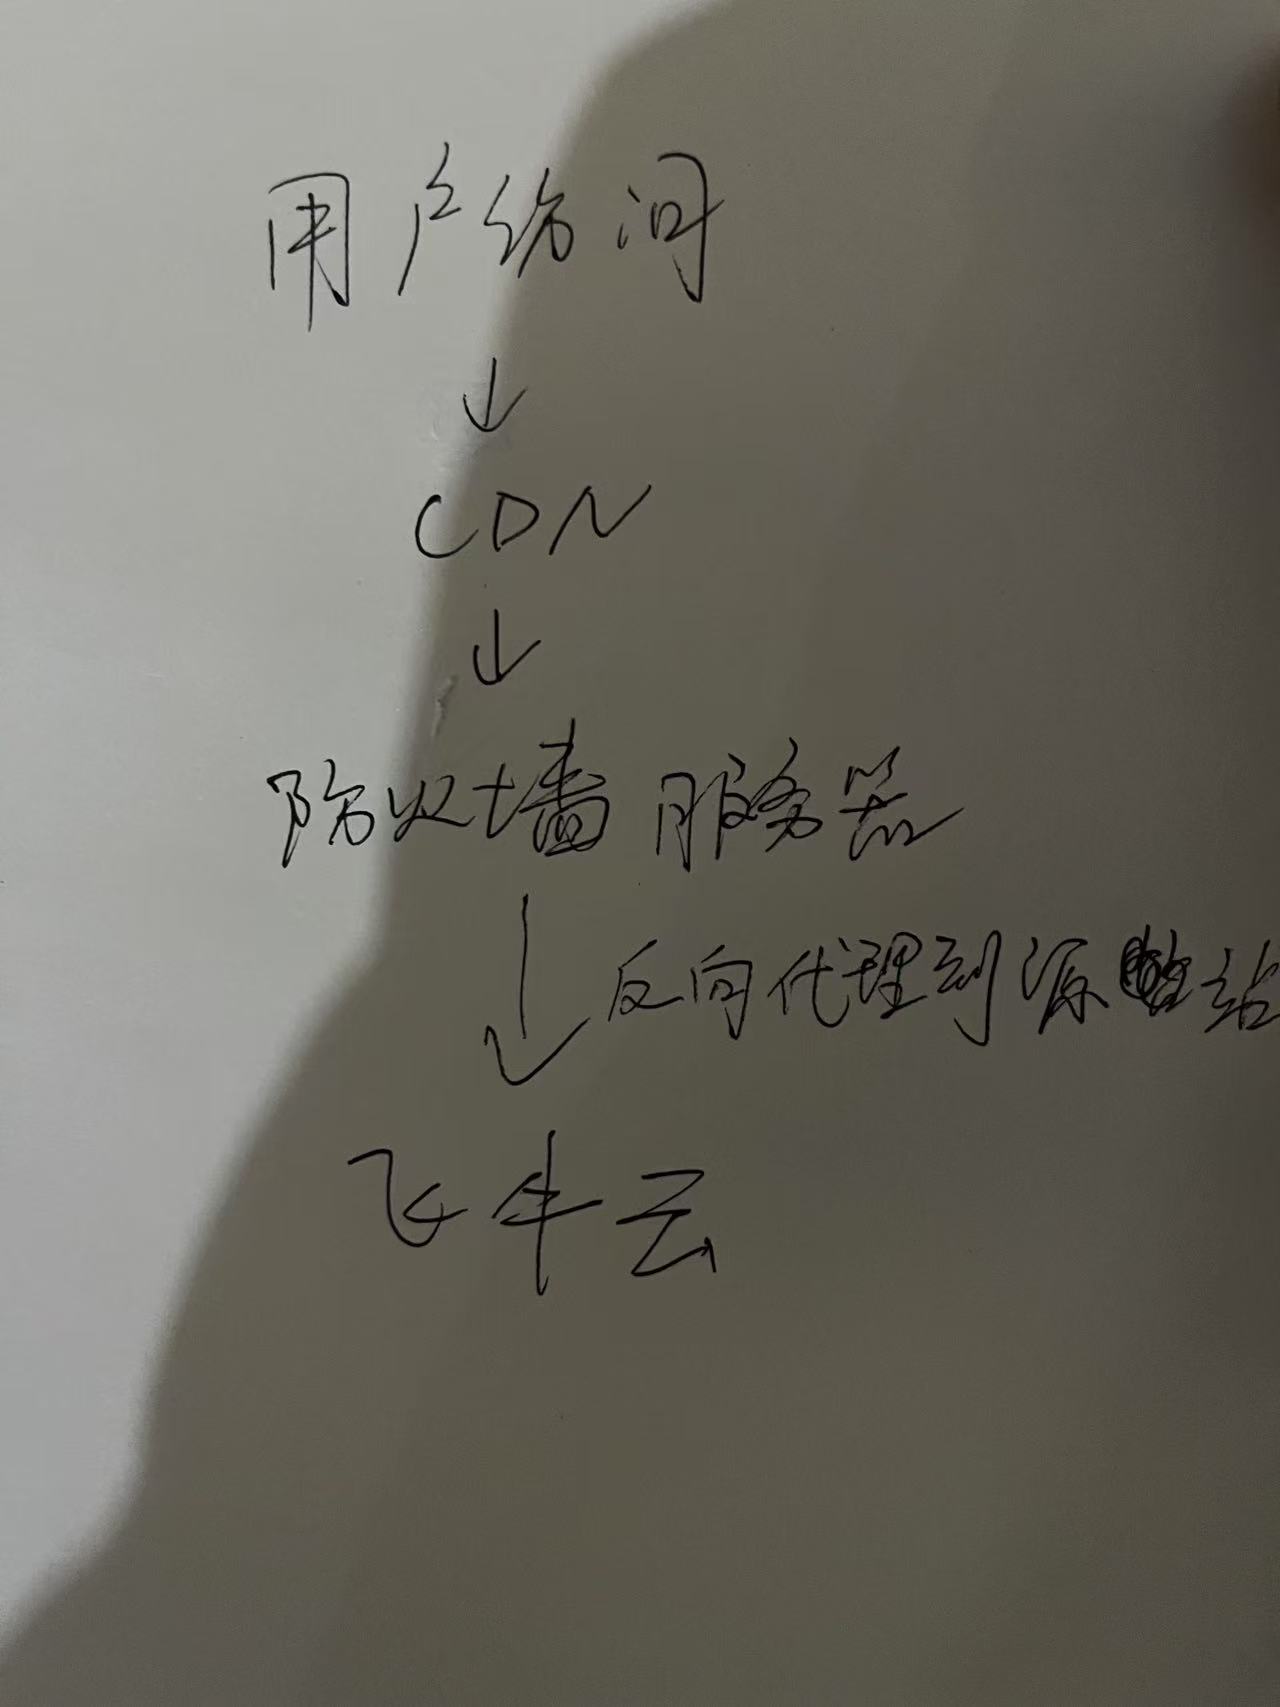 用户访问
↓
CDN
↓
防火墙服务器
↓ 反向代理到源站
飞牛云